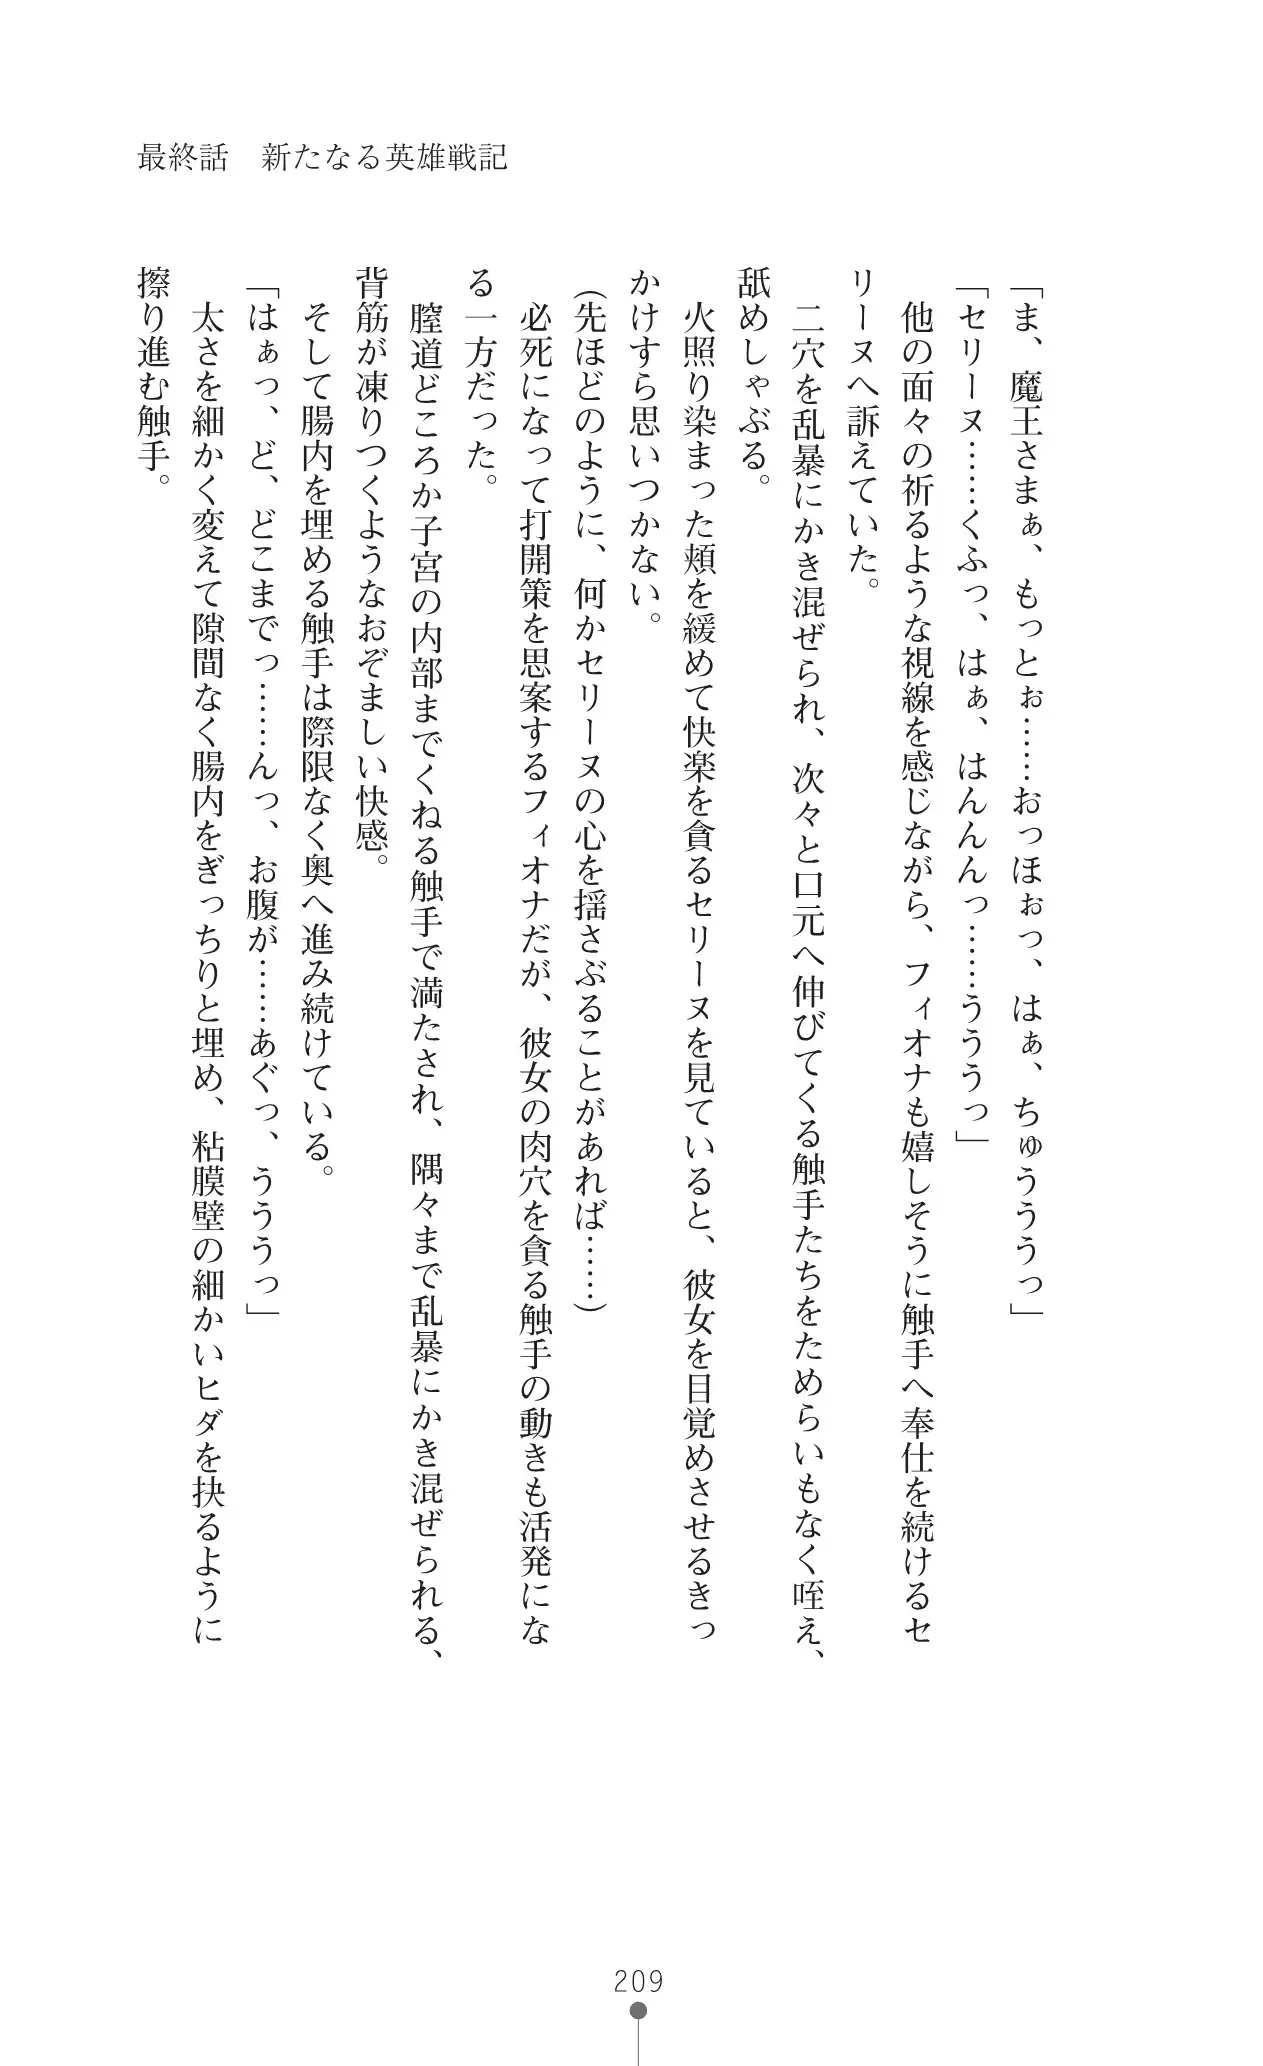 最終話　新たなる英雄戦記
「ま、魔王さまぁ、もっとぉ……おっほぉっ、はぁ、ちゅううぅっ」
「セリーヌ……くふっ、はぁ、はんんんっ……うううっ」
　他の面々の祈るような視線を感じながら、フィオナも嬉しそうに触手へ奉仕を続けるセ
リーヌへ訴えていた。
　二穴を乱暴にかき混ぜられ、次々と口元へ伸びてくる触手たちをためらいもなく咥え、
舐めしゃぶる。
　火照り染まった頬を緩めて快楽を貪るセリーヌを見ていると、彼女を目覚めさせるきっ
かけすら思いつかない。
（先ほどのように、何かセリーヌの心を揺さぶることがあれば……）
　必死になって打開策を思案するフィオナだが、彼女の肉穴を貪る触手の動きも活発にな
る一方だった。
　膣道どころか子宮の内部までくねる触手で満たされ、隅々まで乱暴にかき混ぜられる、
背筋が凍りつくようなおぞましい快感。
　そして腸内を埋める触手は際限なく奥へ進み続けている。
「はぁっ、ど、どこまでっ……んっ、お腹が……あぐっ、うううっ」
　太さを細かく変えて隙間なく腸内をぎっちりと埋め、粘膜壁の細かいヒダを抉るように
擦り進む触手。
209